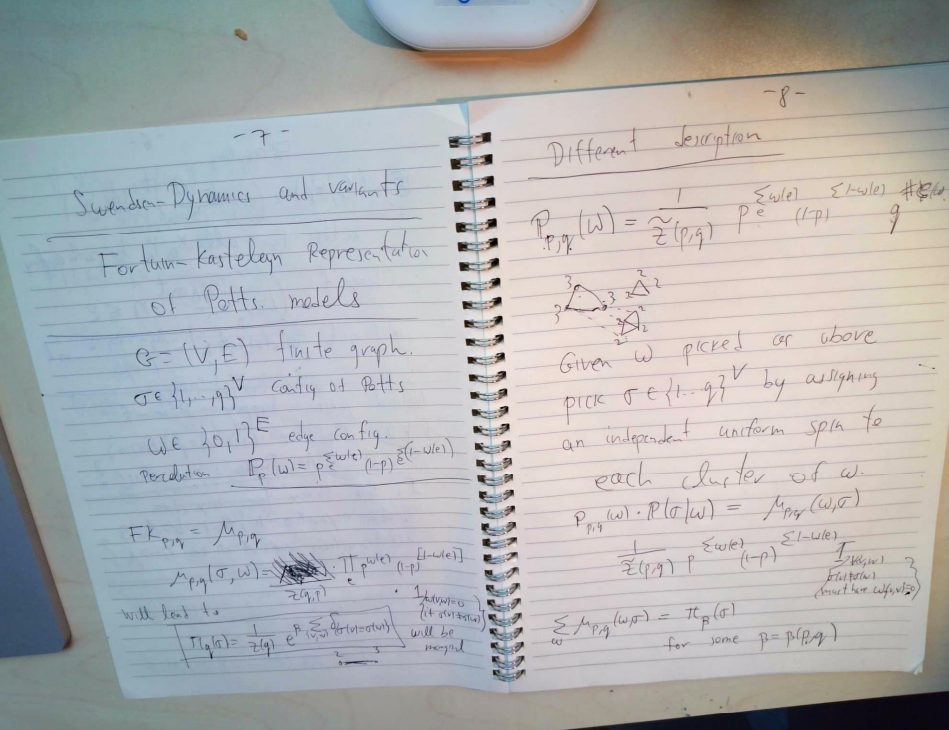 -7-
Swendsen-Dynamics and variants
Fortuin-Kasteleyn Representation
of Potts. models
G=(V,E) finite graph.
σ∈{1,..,q}^V Config of Potts
ω∈ {0,1}^E edge config.
Percolation P_p(ω) = p^{Σ_e ω(e)} (1-p)^{Σ_e (1-ω(e))}
FK_{p,q} = μ_{p,q}
μ_{p,q}(σ,ω) = 1/Z(q,p) · Π_e p^{ω(e)} (1-p)^{[1-ω(e)]}
will lead to
Π_q(σ) = 1/Z(q) e^{β Σ_{(v,w)} δ_{σ(v)=σ(w)}}
will be
-8-
Different description
P_{p,q}(ω) = 1/Z̃(p,q) p^{Σ_e ω(e)} (1-p)^{Σ 1-ω(e)} q
3 2 2
3 3 2
2 2
Given ω picked as above
pick σ∈{1...q}^V by assigning
an independent uniform spin to
each cluster of ω.
P_{p,q}(ω) · P(σ|ω) = μ_{p,q}(ω,σ)
1/Z̃(p,q) p^{Σω(e)} (1-p)^{Σ1-ω(e)}
(must have ω(v,w)=0)
Σ_ω μ_{p,q}(ω,σ) = Π_β(σ)
for some β=β(p,q)